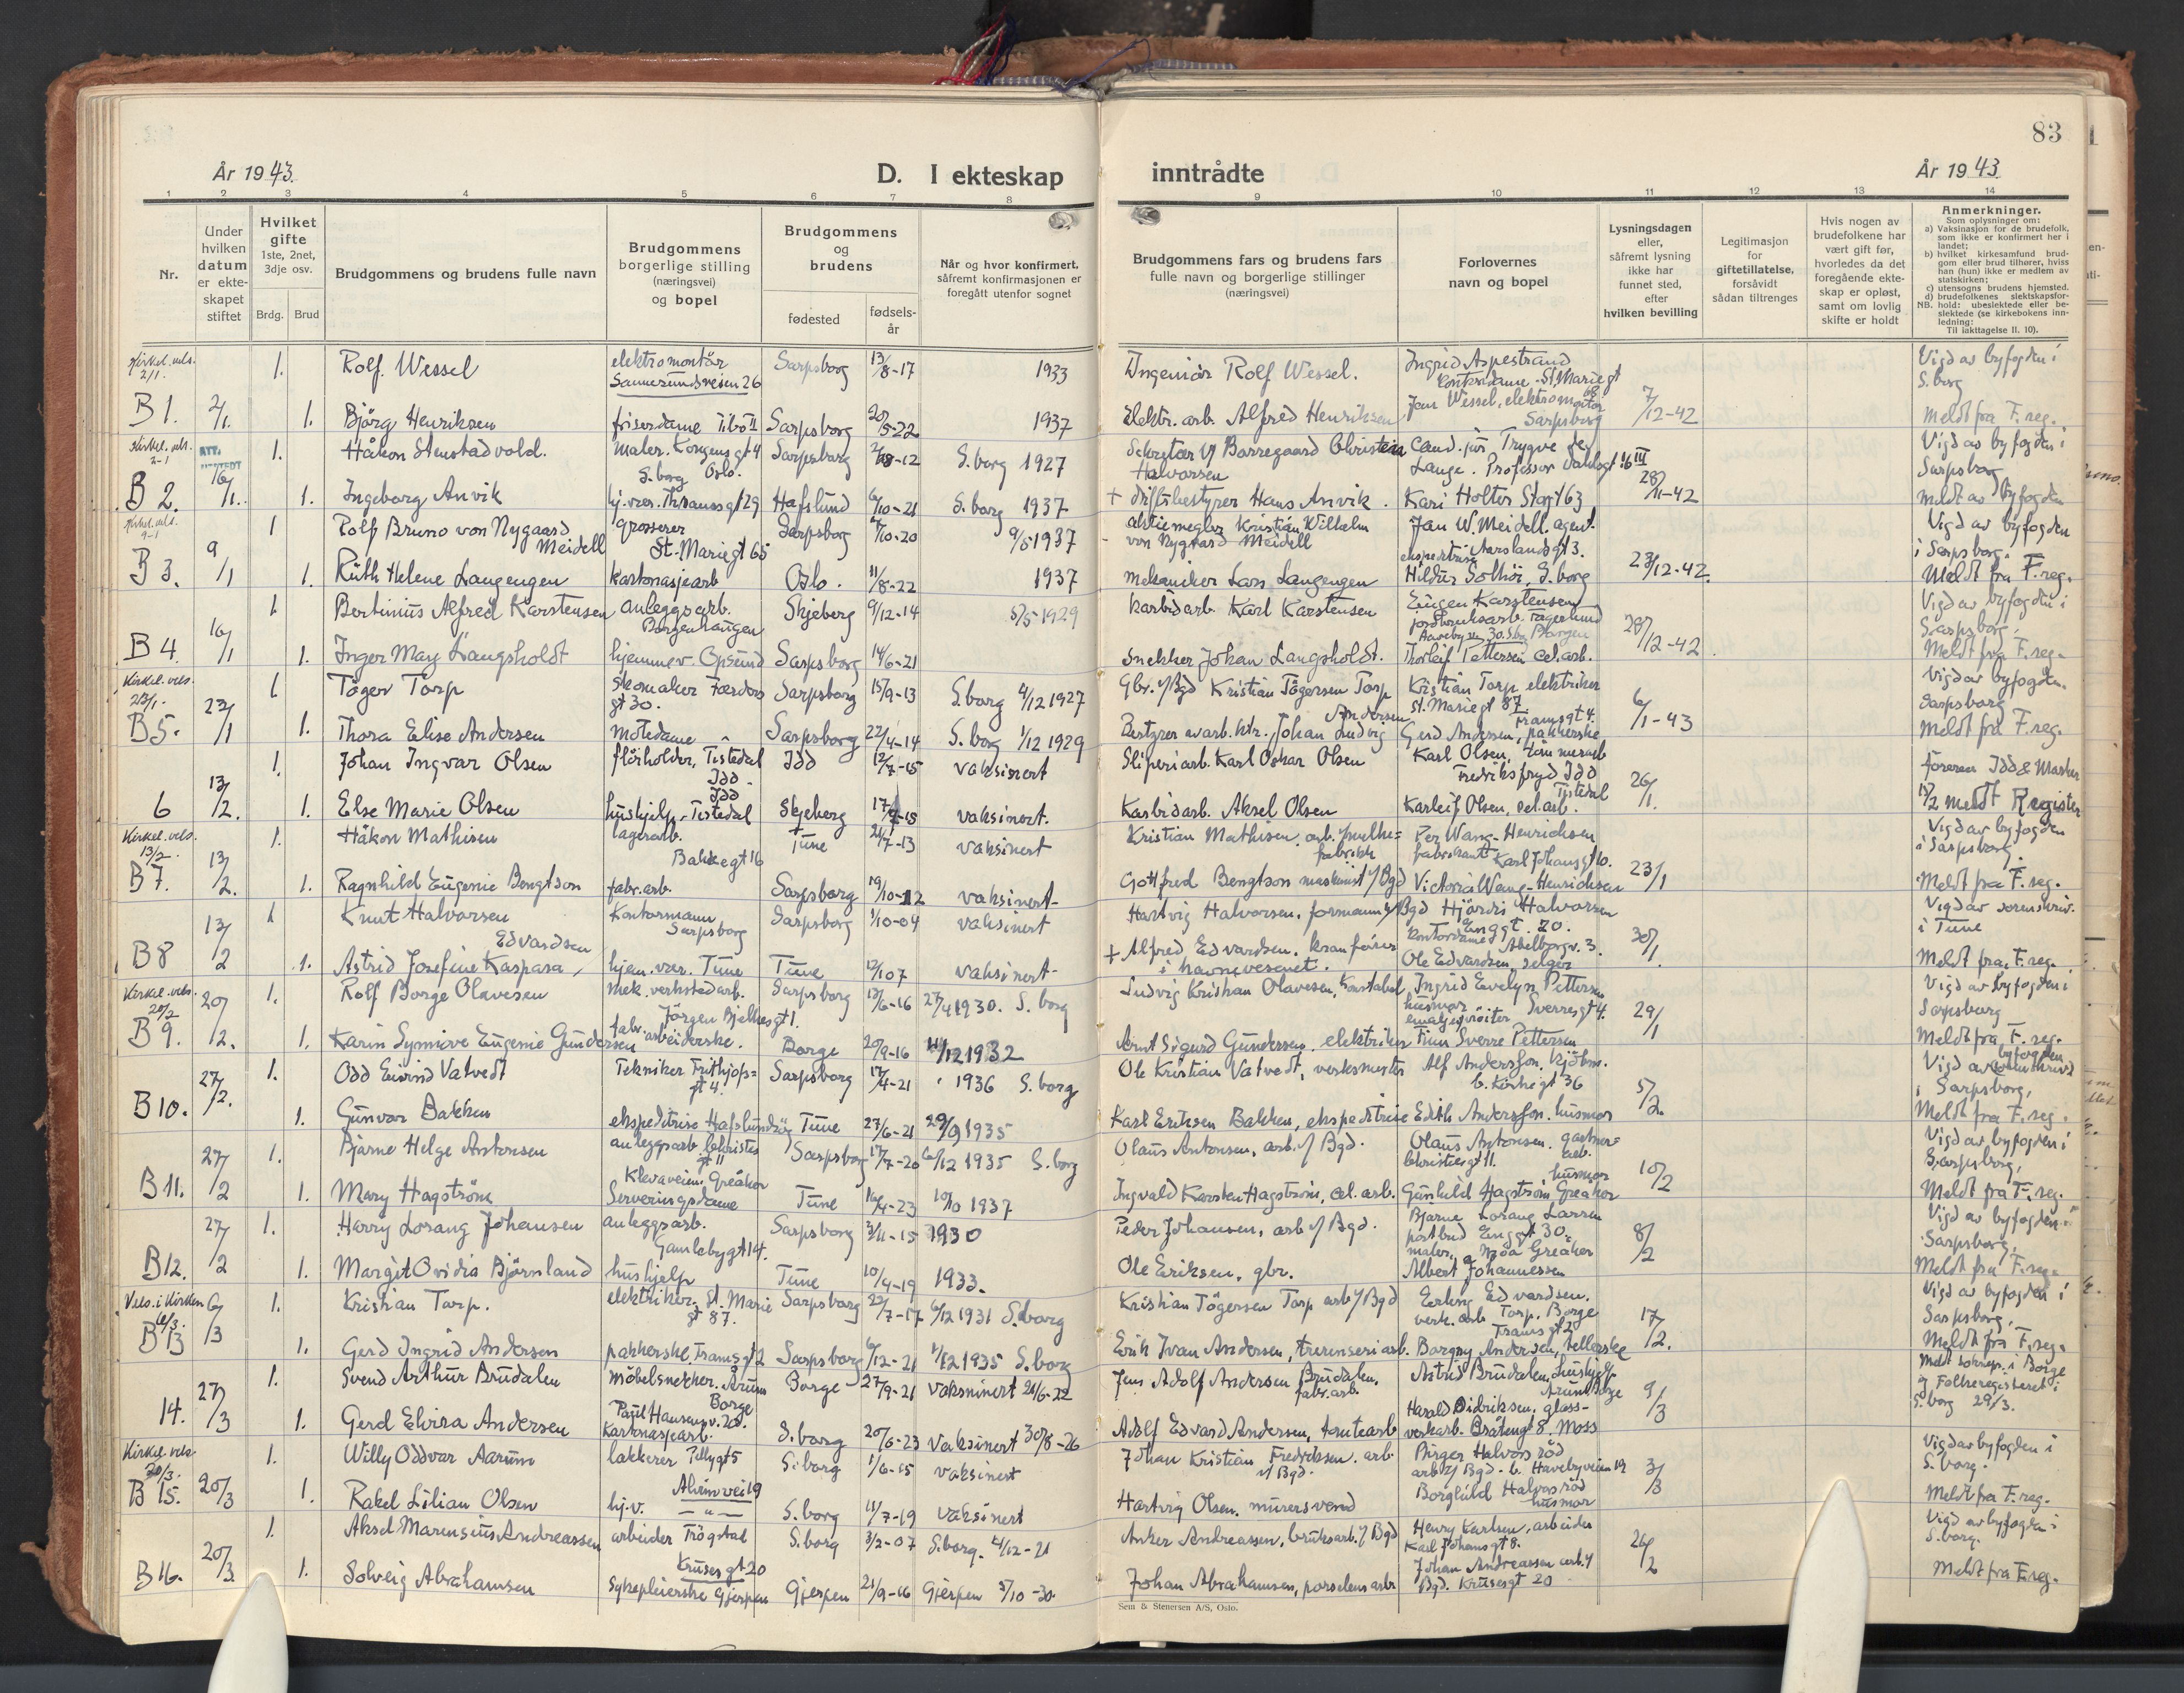 83
År 1943.
D. I ekteskap inntrådte
År 1943
1 2 3 4 5 6 7 8 9 10 11 12 13 14
Nr.
Under hvilken datum er ekteskapet stiftet
Hvilket gifte
1ste, 2net, 3dje osv.
Brdg. Brud
Brudgommens og brudens fulle navn
Brudgommens borgerlige stilling (næringsvei) og bopel
Brudgommens og brudens
fødested
fødselsår
Når og hvor konfirmert, såfremt konfirmasjonen er foregått utenfor sognet
Brudgommens fars og brudens fars fulle navn og borgerlige stillinger (næringsvei)
Forlovernes navn og bopel
Lysningsdagen eller, såfremt lysning ikke har funnet sted, efter hvilken bevilling
Legitimasjon for giftetillatelse, forsåvidt sådan tiltrenges
Hvis nogen av brudefolkene har vært gift før, hvorledes da det foregående ekteskap er opløst, samt om lovlig skifte er holdt
Anmerkninger.
Som oplysninger om:
a) Vaksinasjon for de brudefolk, som ikke er konfirmert her i landet;
b) hvilket kirkesamfund brudgom eller brud tilhører, hviss han (hun) ikke er medlem av statskirken;
c) utensogns brudens hjemsted.
d) brudefolkenes slektskapsforhold: ubeslektede eller beslektede (se kirkebokens innledning:
NB. Til iakttagelse II. 10).
Kirkel. vels. 2/1. 1. Rolf Wessel elektromontør Sannesundsveien 26 Sarpsborg 13/8-17 1933 Ingeniør Rolf Wessel. Ingrid Aspestrand kontordame St. Marie gt Vigd av byfogden i S.borg
B 1. 2/1. 1. Bjørg Henriksen frisørdame Sarpsborg 20/5-22 1937 Elektr. arb. Alfred Henriksen Jan Wessel, elektromontør Sarpsborg 7/12-42 Meldt fra F. reg.
Kirkel. vels. 2-1 1. Håkon Stenstadvold. Maler. Kongensgt 4 S.borg Oslo. Sarpsborg 18-12 S.borg 1927 Sekretær v/ Borregaard Christian Halvorsen Cand. jur Trygve de Lange. Professor Dahlsgt 16 III Vigd av byfogden i Sarpsborg
B 2. 16/1. 1. Ingeborg Anvik hj.vær. Thranesgt 29 Hafslund 6/10-21 S.borg 1937 + driftsbestyrer Hans Anvik. Kari Holter Stgt 63 28/11-42 meldt av byfogden
Kirkel. vels. 9-1 1 Rolf Bruno von Nygaard Meidell grosserer St. Marie gt 65 Sarpsborg /10-20 9/5 1937 aksjemegler Kristian Wilhelm von Nygaard Meidell Jan W. Meidell. agent. Aarslandsgt 3. Vigd av byfogden i Sarpsborg.
B 3. 9/1 1. Ruth Helene Langengen kartonasjearb Oslo. 11/8-22 1937 mekaniker Lars Langengen ekspeditrise Hildur Solhøi, S.borg 23/12-42. Meldt fra F.reg.
1. Bertinius Alfred Karstensen anleggsarb. Borgenhaugen Skjeberg 9/12-14 5/5-1929 karbidarb. Karl Karstensen Eugen Karstensen jordbruksarb. Fagerlund Vigd av byfogden i Sarpsborg.
B 4. 16/1 1. Inger May Langsholdt hjemmev. Opsund Sarpsborg 14/6-21 Snekker Johan Langsholdt. Thorleif Pettersen cel.arb. 28/12-42. Meldt fra F.reg.
Kirkel. vels. 23/1. 1. Tøger Torp Skomaker Færders gt 30. Sarpsborg 15/9-13 S.borg 4/12 1927 Gbr. v/Bgd Kristian Tøgersen Torp Kristian Torp elektriker St. Marie gt 87 Vigd av byfogden Sarpsborg
B 5. 23/1 1. Thora Elise Andersen Motedame Sarpsborg 22/4-14 S.borg 1/12 1929 Bestyrer av arb.ktr. Johan Ludvig Andersen Gerd Andersen, pakkerske Framsgt 4. 6/1-43 Meldt fra F.reg.
1. Johan Ingvar Olsen flørholder, Tistedal Idd Idd 12/7-15 vaksinert Sliperiarb. Karl Oskar Olsen Karl Olsen, tømmerarb Fredriksfryd Idd Føreren Idd & Marker
6 13/2. 1. Else Marie Olsen hushjelp - Tistedal Idd Skjeberg 17/ -15 vaksinert. Karbidarb. Aksel Olsen Karleif Olsen, cel.arb. Tistedal 26/1. 15/2 meldt Register
Kirkel. vels. 13/2. 1. Håkon Mathisen lagerarb. Bakkegt 16 Tune 21/7-13 vaksinert Kristian Mathisen, arb. v/ fabrikk Per Wang-Henrichsen fabrikant Karl Johansgt 10. Vigd av byfogden i Sarpsborg
B 7. 13/2. 1. Ragnhild Eugenie Bengtson fabr.arb. Sarpsborg 19/10-12 vaksinert - Gottfred Bengtson maskinist v/Bgd Victoria Wang-Henrichsen 23/1 Meldt fra F. reg.
1 Knut Halvorsen Kontormann Sarpsborg Sarpsborg 1/10-04 vaksinert Hartvig Halvorsen, formann v/Bgd Hjørdis Halvorsen Kontordame Enggt. 20. Vigd av sorenskriv. i Tune
B 8 13/2 1. Astrid Josefine Kaspara Edvardsen hjem.vær. Tune Tune 12/1 07 vaksinert - + Alfred Edvardsen. kranfører i havnevesenet. Ole Edvardsen, selger Abelborgv. 3. 30/1. Meldt fra F. reg.
Kirkel. vels. 20/2 1. Rolf Borge Olavesen Mek. verkstedarb. Jørgen Bjelkesgt 1. Sarpsborg 13/6-16 27/4 1930. S.borg Ludvig Kristian Olavesen, Konstabel Ingrid Evelyn Pettersen husmor Sverresgt 4. Vigd av byfogden i Sarpsborg
B 9. 20/2. 1. Karin Synnøve Eugenie Gundersen fabr. arbeiderske. Borge 20/9-16 11/12 1932 Arnt Sigurd Gundersen. elektriker Finn Sverre Pettersen 29/1 Meldt fra F. reg.
27/2. 1. Odd Eivind Vatvedt Tekniker Frithjofsgt 4. Sarpsborg 17/4-21 1936 S.borg Ole Kristian Vatvedt, verksmester Alf Andersson, kjøbm. b. Kirkegt 36 Vigd av byfogden i Sarpsborg,
B 10. 1. Gunvor Bakken ekspeditrise Hafslundsøy Tune 27/6-21 29/9 1935 Karl Eriksen Bakken, ekspeditrise Edith Andersson. husmor 5/2. Meldt fra F. reg.
27/2 1. Bjarne Helge Antonsen anleggsarb. Christies gt 11 Sarpsborg 17/7-20 6/12 1935 S.borg Olaus Antonsen, arb. v/ Bgd. Olaus Antonsen. gartnerarb. Christiesgt 11. Vigd av byfogden i Sarpsborg,
B 11. 1. Mary Hagstrøm Klevaveien Greåker Serveringsdame Tune 16/4-23 10/10 1937 Ingvald Karsten Hagstrøm, cel. arb. Gunhild Hagstrøm Greåker husmor 10/2 Meldt fra F. reg.
27/2 1. Harry Lorang Johansen anleggsarb. Gamlebygt 14. Sarpsborg 3/11-15 1930 Peder Johansen, arb v/ Bgd. Bjarne Lorang Larsen postbud Enggt 30. Vigd av byfogden i Sarpsborg,
B 12. 1. Margit Ovidia Bjørnland hushjelp Tune 10/4-19 1933. Ole Eriksen, gbr. maler, Moa Greåker Albert Johannessen 8/2 Meldt fra F.reg.
Vels. i kirken 6/3. 1. Kristian Torp. elektriker. St. Marie gt 87. Sarpsborg 22/7-17 6/12 1931 S.borg Kristian Tøgersen Torp arb v/Bgd Erling Edvardsen. verk. arb Torp. Borge Vigd av byfogden i Sarpsborg,
B 13 6/3 1. Gerd Ingrid Andersen pakkerske, Framsgt 2 Sarpsborg 6/12-21 1/12 1935 S.borg Erik Ivan Andersen, trerenseriarb. Borgny Andersen, tellerske Framsgt 2 17/2. Meldt fra F.reg.
1. Svend Arthur Brudalen Møbelsnekker. Årum Borge Borge 27/9-21 vaksinert 21/6-22 Jens Adolf Andersen Brudalen, fabr.arb. Astrid Brudalen, hushjelp Årum Borge Meldt sokнepr. i Borge og Folkeregisteret i S.borg 29/3.
14. 27/3 1. Gerd Elvira Andersen Paul Hansensv. 20. Kartonasjearb. S.borg 20/6-23 Vaksinert 30/8-26 Adolf Edvard Andersen, tomtearb Harald Didriksen. glassverkarb. Bråtengt 8. Moss 9/3
Kirkel. vels. 20/3. 1. Willy Oddvar Aarum lakkerer Tillygt 5 S.borg 1/6-15 vaksinert Johan Kristian Fredriksen. arb. v/ Bgd. Birger Halvorsrød arb v/ Bgd. b. Havebyveien 19 Vigd av byfogden i S.borg.
B 15. 20/3 1. Rakel Lilian Olsen hj.v. Alvimvei 19 S.borg 11/7-19 vaksinert Hartvig Olsen. murersvend Borghild Halvorsrød husmor 3/3 Meldt fra F. reg.
1. Aksel Marensius Andreassen arbeider Trøgstad S.borg 3/2-07 S.borg. 4/12-21 Anker Andreassen, bruksarb. v/ Bgd Henry Karlsen, arbeider Karl Johansgt 8. Vigd av byfogden i S.borg.
B 16. 20/3. 1. Solveig Abrahamsen Krusesgt 20 Sykepleierske Gjerpen Gjerpen 21/9-16 Gjerpen 5/10-30. Johan Abrahamsen, porselensarb. Johan Andreassen arb. v/ Bgd. Krusesgt 20 26/2 Meldt fra F.reg.
Sem & Stenersen A/S, Oslo.